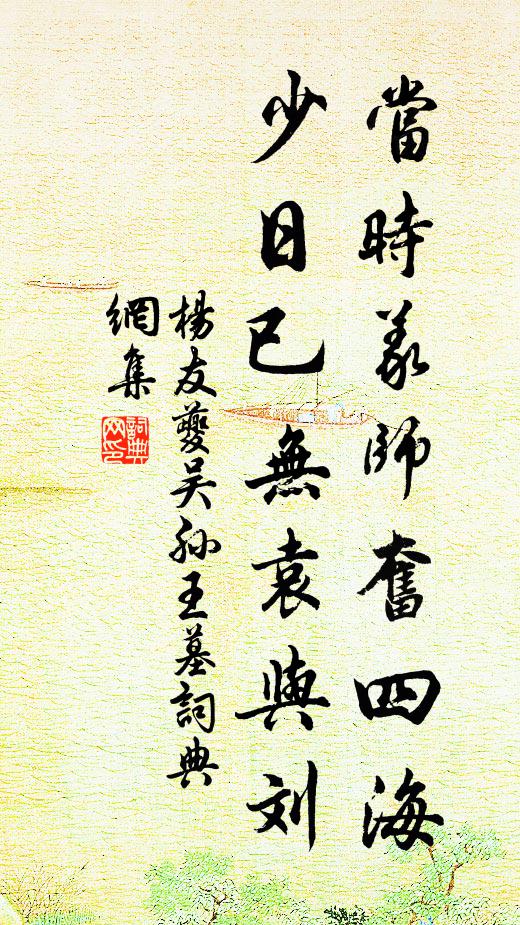 當時義師奮四海
少日已無袁與刘
楊友夔吴孙王墓詞典
網集
詞典
网印